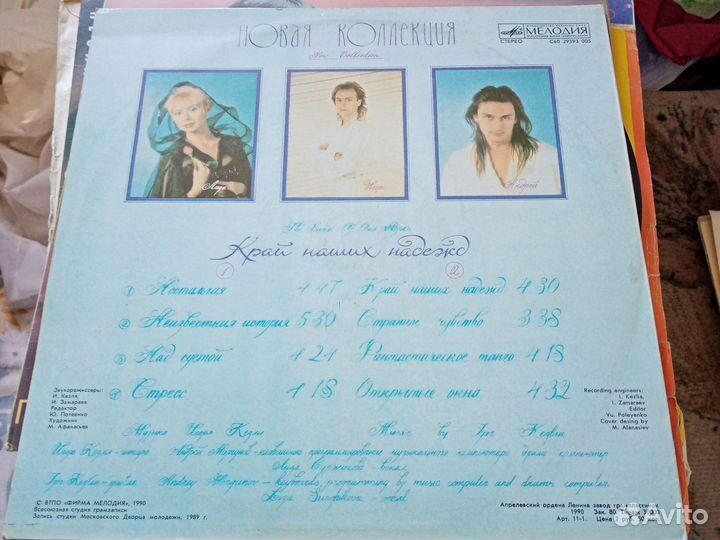 НОВАЯ КОЛЛЕКЦИЯ
New Collection
МЕЛОДИЯ
СТЕРЕО
С60 29393 005
Лида
Игорь
Андрей
Край наших надежд
1
2
1 Ностальгия 4 47
2 Неизвестная история 5 30
3 Над суетой 4 21
4 Стресс 4 18
Край наших надежд 4 30
Странное чувство 3 38
Фантастическое танго 4 18
Открытые окна 4 32
Звукорежиссеры:
И. Кезля,
И. Замараев
Редактор
Ю. Потеенко
Художник
М. Афанасьев
Recording engineers:
I. Kezlia,
I. Zamaraev
Editor
Yu. Poteyenko
Cover desing by
M. Afanasiev
Музыка Игоря Кезли
Music by Igor Kezlia
Игорь Кезля - гитара Андрей - клавишные программирование музыкального компьютера драмм компьютер
Лида - вокал
Igor Kezlia - guitar Andrey - keyboards programming by music computer and drums computer
- vocal
© ВТПО «ФИРМА МЕЛОДИЯ», 1990
Всесоюзная студия грамзаписи
Запись студии Московского Дворца молодежи, 1989 г.
Апрелевский ордена Ленина завод грампластинок
1990 Зак. 80
Арт. 11-1. Цена 2 руб. 50 коп.
Avito